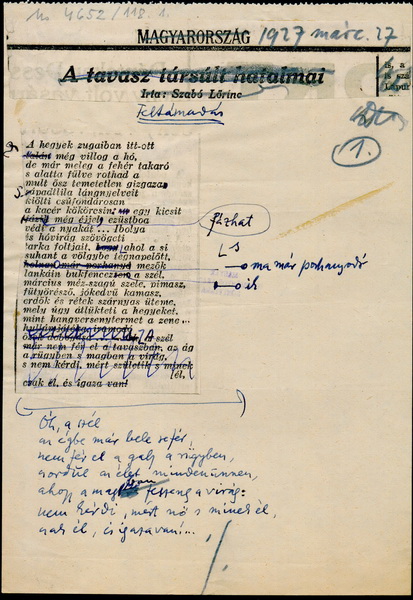 Ms 4652/118. 1.
MAGYARORSZÁG 1927 márc. 27
A tavasz társult hatalmai
Irta: Szabó Lőrinc
Feltámadás
1.
A hegyek zugaiban itt-ott
még villog a hó,
de már meleg a fehér takaró
s alatta fülve rothad a
mult ősz temetetlen gizgaza,
s západlila lángnyelveit
kiölti csúfondárosan
a kacér kökörcsin: egy kicsit
még éjjel ezüstboa
védi a nyakát... Ibolya
és hóvirág szövögeti
tarka foltjait, ahol a si
suhant a völgybe tegnapelőtt,
mezők
lankáin bukfencezem a szél,
március méz-szagú szele, pimasz,
fütyörésző, jókedvű kamasz,
erdők és rétek szárnyas üteme,
mely úgy átlükteti a hegyeket,
mint hangversenytermet a zene...
A szél
már nem fér el a tavaszban, az ág
a rügyben s magban a virág,
s nem kérdi, mért születik s minek
él,
csak él, és igaza van!
fázhat
s
ma már porhanyodó
és
Óh, a szél
az égbe már bele sefér,
nem fér el a galy a rügyben,
mordul az élet mindenünnen,
ahogy a magban feszeng a virág:
nem kérdi, mért nő s minek él,
csak él, és igaza van!...